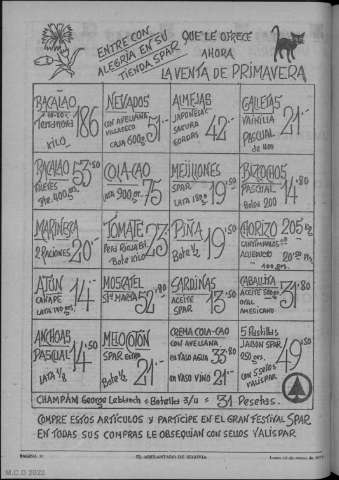 ENTRE CON
ALEGRIA EN SU
TIENDA SPAR
QUE LE OFRECE
AHORA
LA VENTA DE PRIMAVERA
BACALAO
Terranova 186
KILO
NEVADOS
CON AVELLANA
VILLASECO
CAJA 600g. 51
ALMEJAS
JAPONESAS
SAKURA
GORDAS 42
GALLETAS
VAINILLA
PASCUAL 21
BACALAO 53'50
Pte. 400 grs.
COLA-CAO
LATA 900gr. 75
MEJILLONES
SPAR
LATA 19'50
BIZCOCHOS
PASCUAL
Bolsa 200 14'80
MARINERA
2 RACIONES 20
TOMATE 23
Bote Kilo
PIÑA
Bote ½ 19'50
CHORIZO 205
ATUN
CANAPE 14
MOSCATEL
Sta MARTA 52'80
SARDINAS
ACEITE
SPAR 13'50
CABALLITA
ACEITE
OVAL
AMERICANO 31'80
ANCHOAS
PASCUAL
LATA 1/8 14'50
MELOCOTÓN
SPAR extra
Bote ½ 21
CREMA COLA-CAO
CON AVELLANA
EN VASO AGUA 33'80
EN VASO VINO 21
5 Pastillas
JABON SPAR
250 grs.
CON 5 SELLOS
VALISPAR 49'50
CHAMPÁN George Leblanch = Botella 3/4 = 31 Pesetas.
COMPRE ESTOS ARTÍCULOS Y PARTICIPE EN EL GRAN FESTIVAL SPAR
EN TODAS SUS COMPRAS LE OBSEQUIAN CON SELLOS VALISPAR
EL ADELANTADO DE SEGOVIA
M.C.D 2022